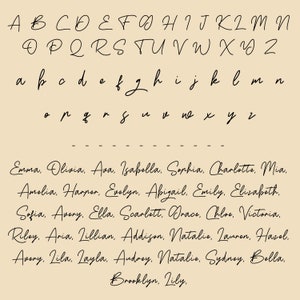 A B C D E F G H I J K L M N
O P Q R S T U V W X Y Z
a b c d e f g h i j k l m n
o p q r s t u v w x y z
- - - - - - - - - - - -
Emma, Olivia, Ava, Isabella, Sophia, Charlotte, Mia,
Amelia, Harper, Evelyn, Abigail, Emily, Elizabeth,
Sofia, Avery, Ella, Scarlett, Grace, Chloe, Victoria,
Riley, Aria, Lillian, Addison, Natalie, Lauren, Hazel,
Avery, Lila, Layla, Audrey, Natalie, Sydney, Bella,
Brooklyn, Lily,